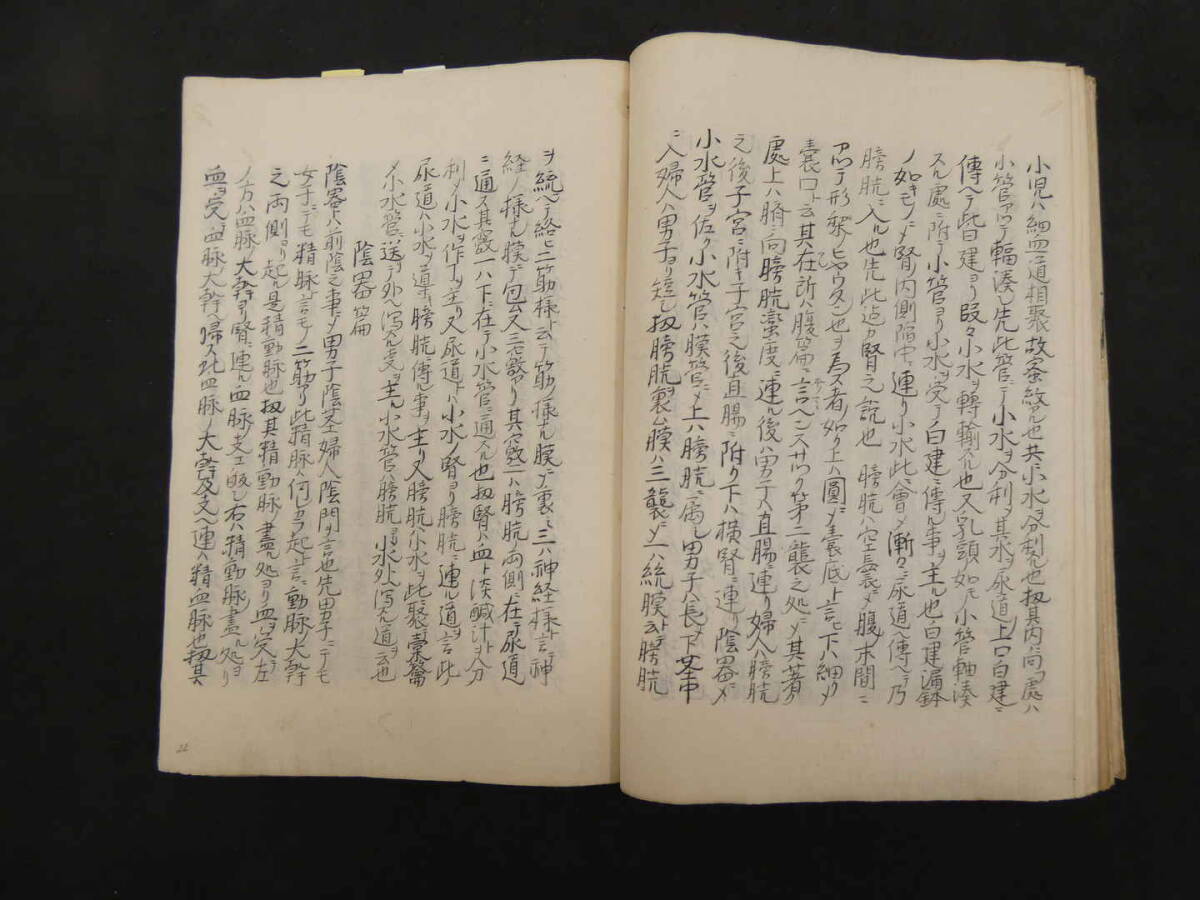 小児ハ細血道相聚故蚤紋アル也共ニ小水ヲ分利スル也扨其内ニ向フ處ハ
小管アツテ輻湊ス先此管ニテ小水ヲ分利シ其水ヲ尿道上口白建ニ
傳ヘテ此白建ヨリ段々小水ヲ轉輸スル也又乳頭如モノ小管軸湊
スル處ニ附テ小管ヨリ小水ヲ受テ白建ニ傳ル事ヲ主ル也白建漏鉢
ノ如キモノニメ腎ノ内側陥中ニ連リ小水此ニ會メ漸々ニ尿道ヘ傳ヘテ乃
膀胱ニ入ル也先此迄カ腎之説也 膀胱ハ空囊ニメ腹末間ニ
アツテ形梨ノヒヤウタン也ヲ為ス者ノ如リ上ハ圓メ囊底ト言ヒ下ハ細リメ
囊口ト云其在所ハ腹篇ニ言ヘンスサルク第二襲之処ニメ其著ク
處上ハ臍ニ向膀胱蛮度ニ連ル後ハ男子ハ直腸ニ連リ婦人ハ膀胱
之後子宮ニ附キ子宮之後直腸ニ附リ下ハ横腎ニ連リ陰器ニメ
小水管ヲ佐ク小水管ハ膜管ニメ上ハ膀胱ニ属シ男子ハ長メ下茎中
ニ入婦人ハ男子ヨリ短シ扨膀胱ヲ製ム膜ハ三襲ニメ一ハ統膜ト云テ膀胱
ヲ統ヘテ絡ヒ二筋様ト云テ筋ノ様ナル膜ナ裏ニ三ハ神経様ト言テ神
経ノ様ナル膜デ包ム又三竅アリ其竅二ハ膀胱両側ニ在テ尿道
ニ通ス其竅一ハ下ニ在テ小水管ニ通スル也扨腎ハ血ト淡鹹汁トヲ分
利メ小水ヲ作ヿヲ主リ又尿道トハ小水ノ腎ヨリ膀胱ニ連ル道ヲ言此
尿道ハ小水ヲ導テ膀胱ニ傳ル事ヲ主リ又膀胱ハ小水ヲ此聚槖籥
メ小水管ニ送テ外ヘ瀉スル支ヲ主ル小水管ハ膀胱ヨリ水外瀉スル道ヲ云也
陰器篇
陰器トハ前陰之事ニメ男子陰茎婦人陰門ヲ言也先男子ニテモ
女子ニテモ精脉ト言モノ二筋アリ此精脉ハ何レカラ起ト言ニ動脉大幹
之両側ヨリ起ル是精動脉也扨其精動脉ノ盡ル処ヨリ血ヲ受左
ノ方ハ血脉ノ大幹ヨリ腎ニ連ル血脉支ニ皈シ右ハ精動脉ノ盡ル処ヨリ
血ヲ受血脉ノ大幹ヘ帰ス此血脉ノ大幹及支ヘ連ハ精血脉也扨其
22